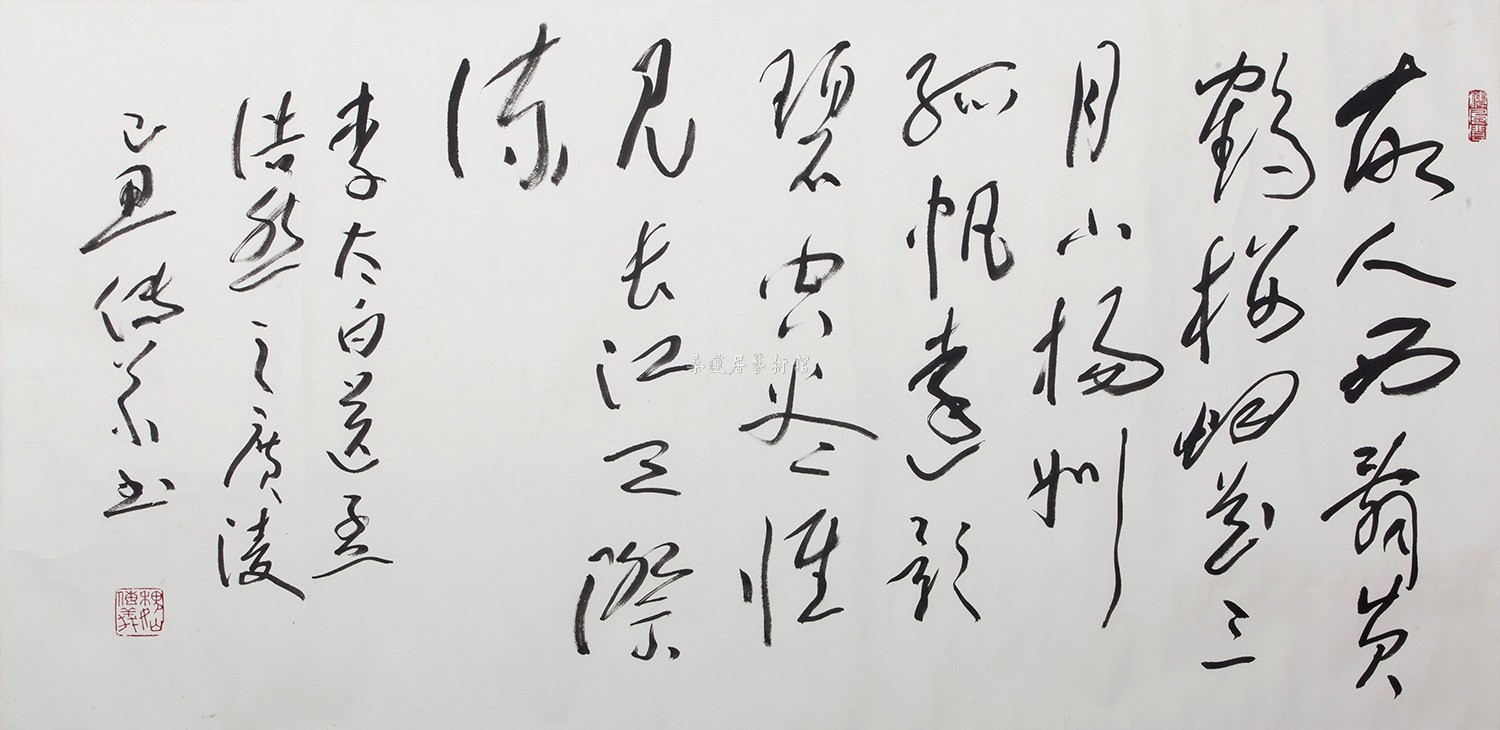 故人西辞黄
鹤楼烟花三
月下扬州
孤帆远影
碧空尽惟
见长江天际
流
李太白送孟
浩然之广陵
己丑传义书